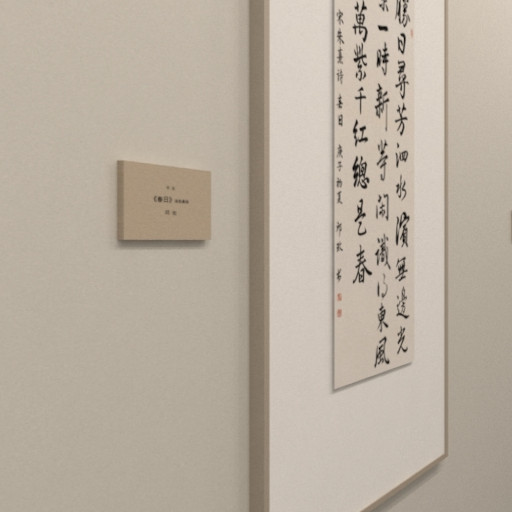 勝日尋芳泗水濱無邊光
景一時新等閑識得東風
萬紫千紅總是春
宋朱熹詩 春日 庚子初夏
《春日》